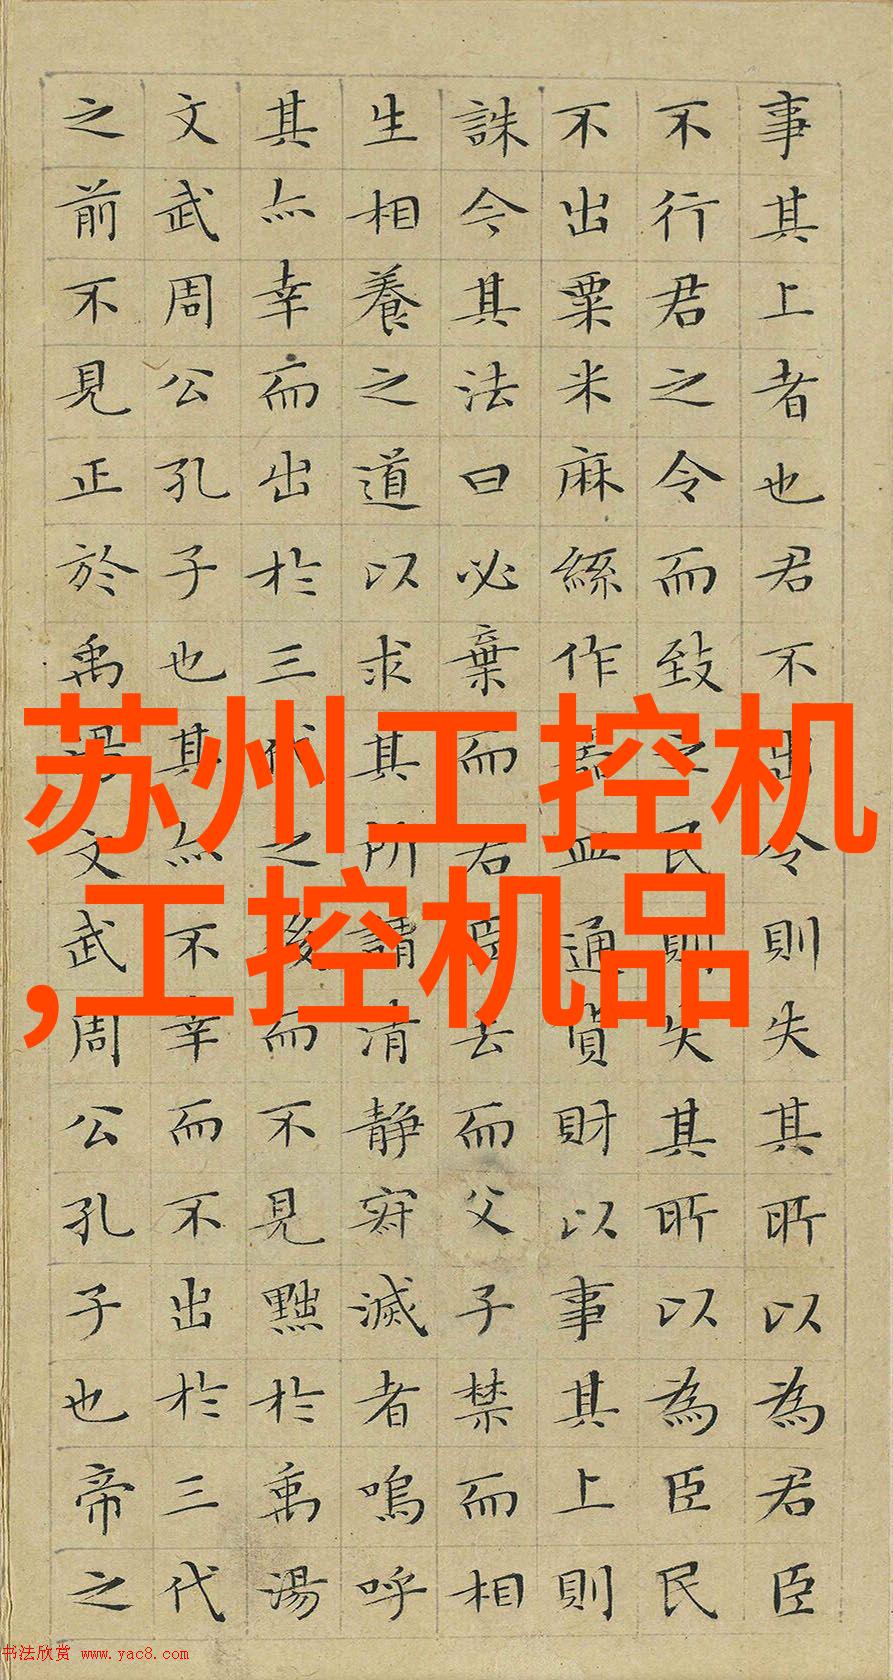 事其上者也君不出令則失其所以為君臣
不行君之令而致之民則失其所以為臣民
不出粟米麻絲作器皿通貨財以事其上則
誅今其法曰必棄而君臣去而父子禁而相
生相養之道以求其所謂清静寂滅者嗚呼
其亦幸而出於三代之後而不見黜於禹湯
文武周公孔子也其亦不幸而不出於三代
之前不見正於禹湯文武周公孔子也帝之
苏州工控机
,工控机品
书法欣赏 www.yac8.com